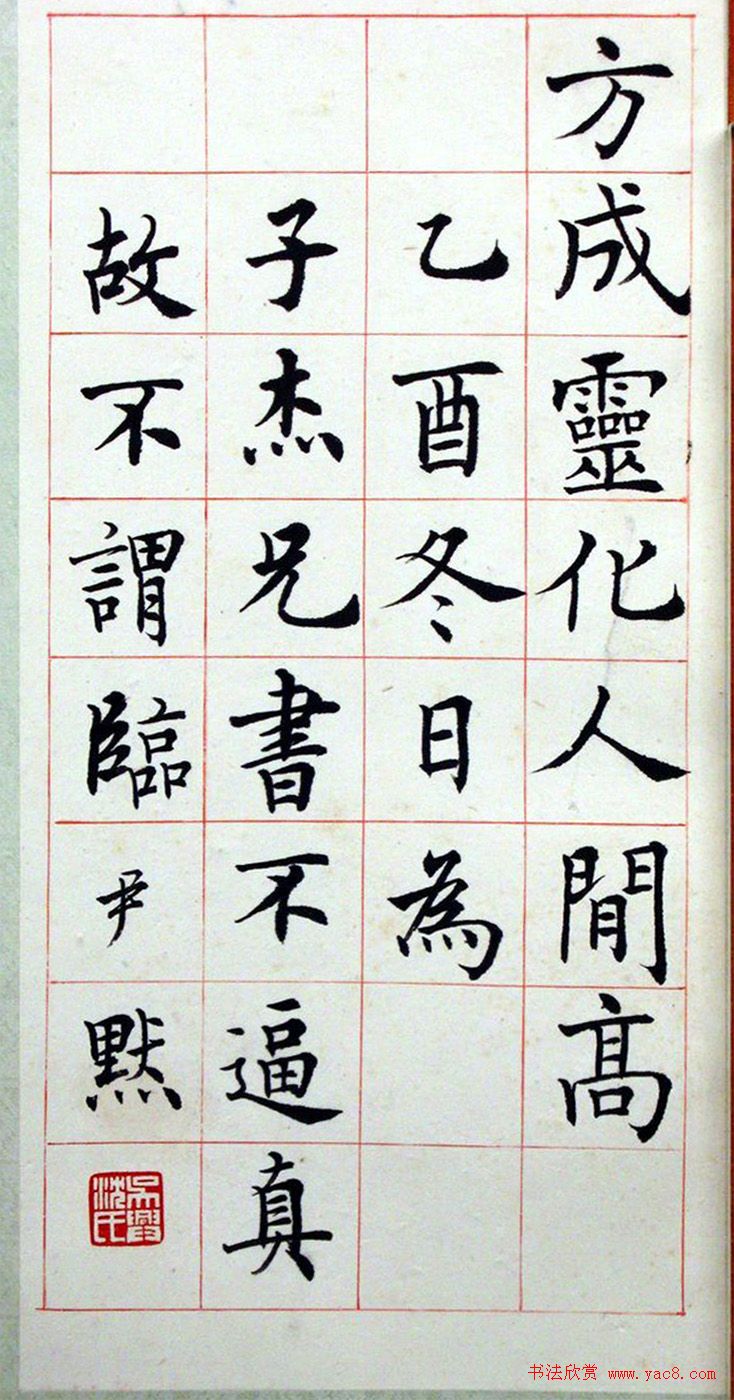 方成靈化人閒髙
乙酉冬日為
子杰兄書不逼真
故不謂臨尹默
吳興沈氏
书法欣赏 www.yac8.com